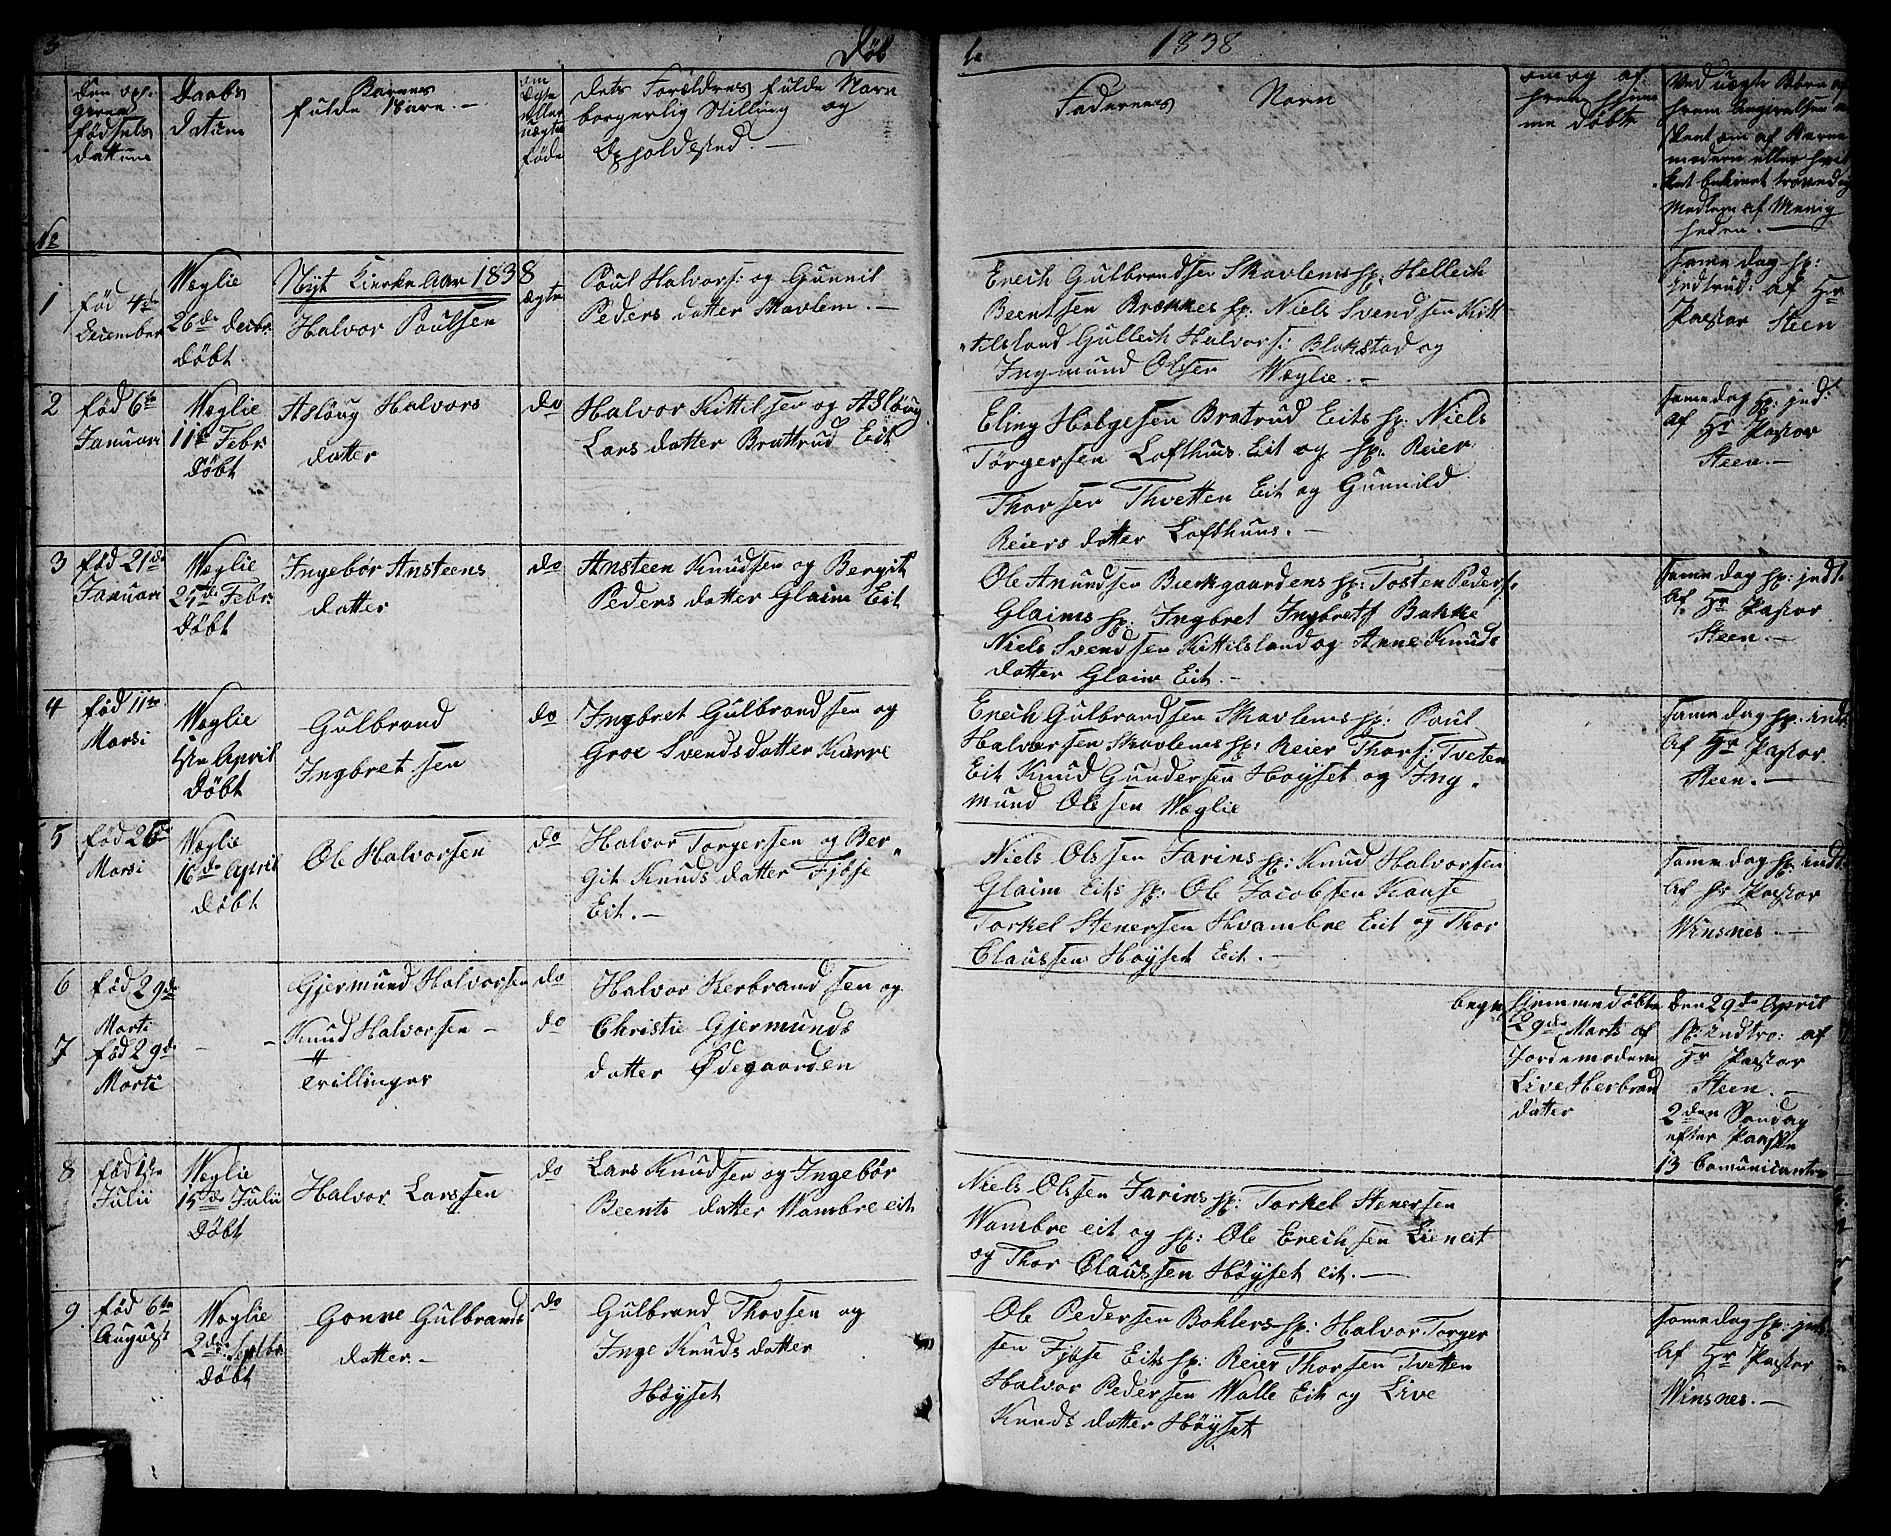 3
Døb
1838
Den op-
givne
fødsels
Dattum
Daabs
Datum
Barnets
fulde Navn. —
om
ægte
eller
uægte
føde
Dets Forældres fulde Navn
borgerlig Stilling og
Opholdssted. —
Faderenes Navn
om og af
hvem hjem
me døbt
Ved uægte Børn af
hvem Angivelsen
skeet om af Barne
moderen eller hvil
ket bekient troværdig
Medlem af Menig
heden. —
No
1
fød 4de
December
Wæglie
26de Decbr.
Døbt
Nyt Kierke Aar 1838
Halvor Poulsen
ægte
Poul Halvors: og Gunnil
Peders datter Skavlem. —
Erich Gulbrandsen Skavlems sp: Hellech
Beentsen Brækkes sp: Niels Svendsen Kitt
tilsland Gullech Halvors: Blakstad og
Ingmund Olsen Wæglie. —
samme dag sp:
Indtrud: af Hr
Pastor Steen
2
fød 6te
Januari
Wæglie
11te Febr.
Døbt
Asloug Halvors
datter
do
Halvor Kittilsen og Asloug
Lars datter Brattrud Eit
Eling Helgesen Bratrud Eits sp: Niels
Törgersen Lofthuus Eit og sp: Reier
Thorsen Thvetten Eit og Gunnild
Reiers datter Lofthuus. —
samme dag sp: ind:
af Hr Pastor
Steen. —
3
fød 21de
Januari
Wæglie
25de Febr.
Døbt
Ingebør Ansteens
datter
do
Ansteen Knudsen og Bergit
Peders datter Glaim Eit
Ole Anundsen Bierkgaardens sp: Tosten Peders:
Glaims sp: Ingbret Ingbrets Bakke
Niels Svendsen Kittilsland og Anne Knuds
datter Glaim Eit. —
samme dag sp: indt.
af Hr Pastor
Steen. —
4
fød 11te
Marsi
Wæglie
1ste April
Døbt
Gulbrand
Ingbretsen
do
Ingbret Gulbrandsen og
Groe Svendsdatter Kierre
Erich Gulbrandsen Skavlems sp: Poul
Halvorsen Skavlems sp: Reier Thors: Tveten
Eit Knud Gundersen Höyset og Ing
mund Olssen Wæglie
samme dag sp: inds
af Hr Pastor
Steen. —
5
fød 26de
Marsi
Wæglie
16de April
Døbt
Ole Halvorsen
do
Halvor Torgersen og Ber
git Knuds datter Fjöse
Eit. —
Niels Olssen Farins sp: Knud Halvorsen
Glaim Eits sp: Ole Jacobsen Kause
Torkel Stenersen Hvambre Eit og Thor
Claussen Höyset Eit. —
samme dag sp: indt
af Hr Pastor
Winsnes. —
6
fød 29de
Marti
Gjermund Halvorsen
do
Halvor Herbrandsen og
Christie Gjermunds
datter Ødegaarden
7
fød 29de
Marti
Knud Halvorsen —
trillinger
do
begge
hiemmedøbte
29de Marts af
Jordemoderen
Live Herbrand
datter
Den 29de April
sp: Indtro: af
Hr Pastor
Steen. —
2den Søndag
efter Paaske
13 Comunicantere
8
fød 1ste
Julii
Wæglie
15de Julii
Døbt
Halvor Larssen
do
Lars Knudsen og Ingebør
Beents datter Wambre eit
Niels Olssen Farins sp: Torkel Stenersen
Wambre eit og sp: Ole Erichsen Lien eit
og Thor Claussen Höyset eit. —
9
fød 6te
August
Wæglie
2de Septbr.
Døbt
Gonne Gulbrands
datter. —
do
Gulbrand Thorsen og
Inge Knuds datter
Höyset
Ole Pedersen Bohlers sp: Halvor Torger
sen Fjöse Eits sp: Reier Thorsen Tvetten
Halvor Pedersen Walle Eit og Live
Knuds datter Höyset
samme dag sp: ind:
af Hr Pastor
Winsnes. —